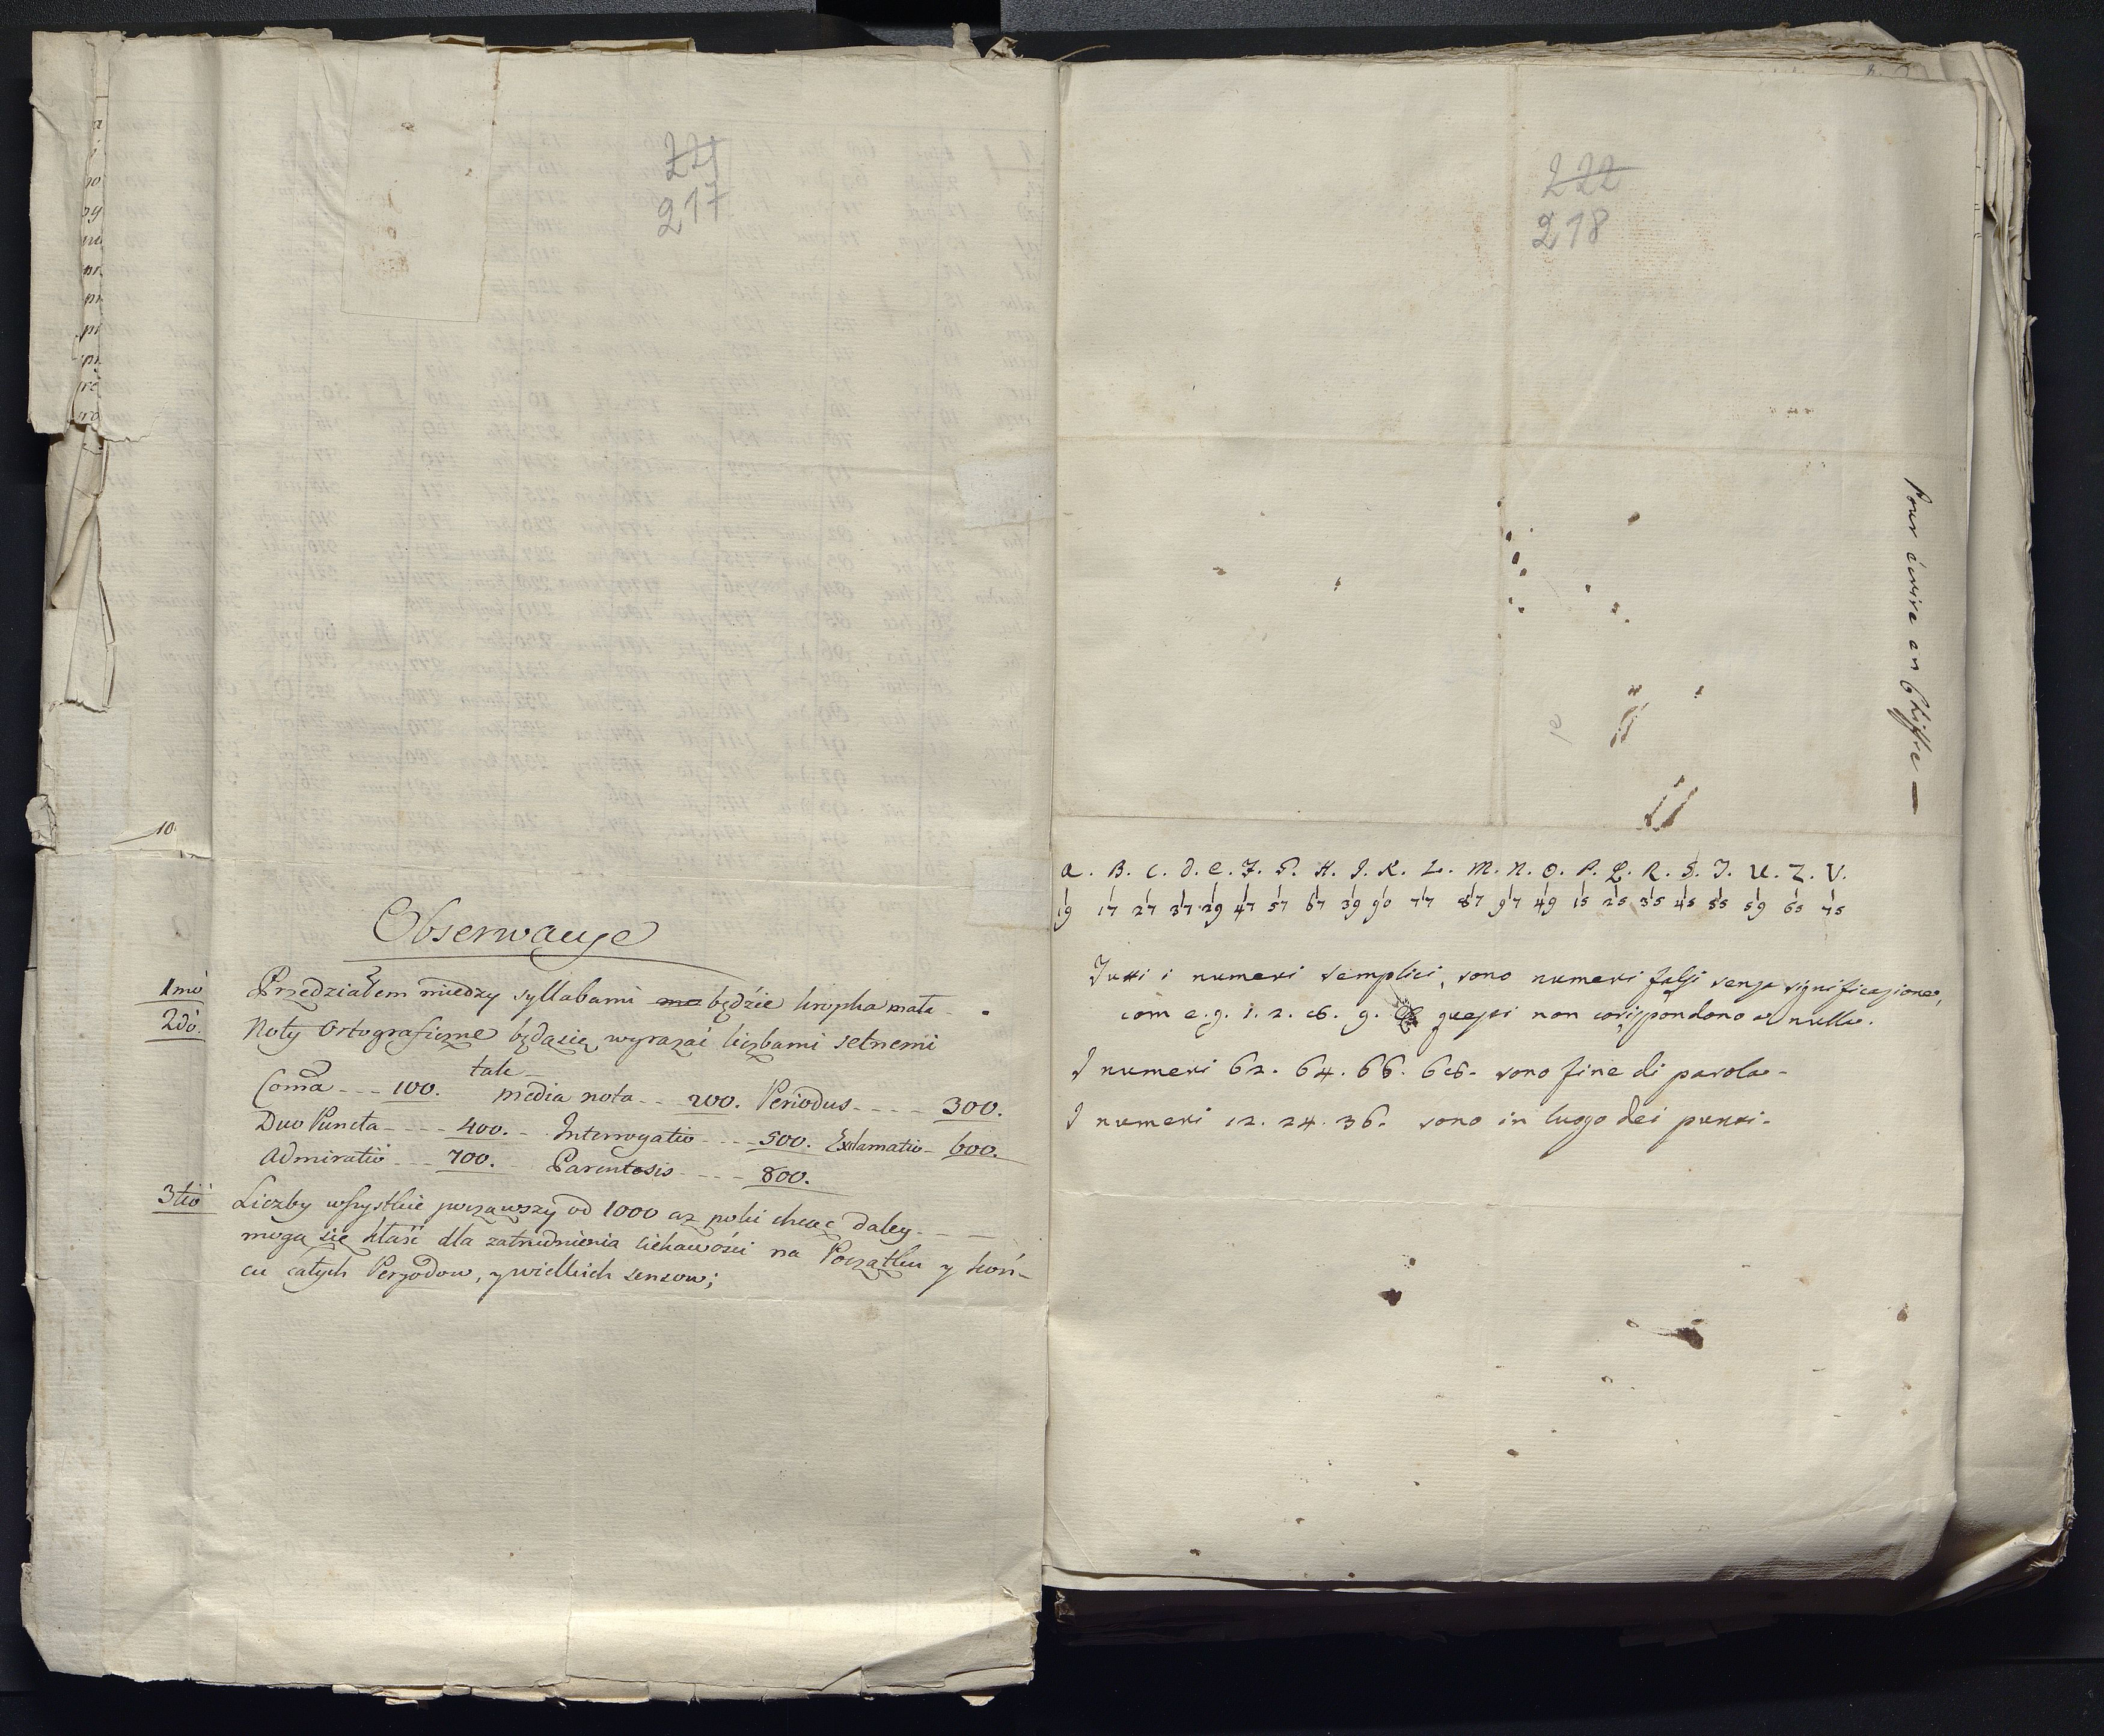 221
217
10
Obserwacye
1mo Przedziałem między syllabami będzie kropka mała .
2do. Noty Ortograficzne będą się wyrażać liczbami setnemi
tak
Coma --- 100. media nota -- 200. Periodus ---- 300.
Duo Puncta ---- 400. - Interrogatio ---- 500. Exclamatio - 600.
Admiratio --- 700. Parentesis ---- 800.
3tio Liczby wszystkie począwszy od 1000 aż poki chcąc daley - - -
mogą się kłaść dla zatrudnienia ciekawości na Początku y koń-
cu całych Peryodow, y wielkich sensow;
222
218
Pour écrire en Chiffre —
A. B. C. D. E. F. G. H. I. K. L. M. N. O. P. Q. R. S. T. U. Z. V.
19 17 27 37 29 47 57 67 39 90 77 87 97 49 15 25 35 45 55 59 65 75
Tutti i numeri semplici, sono numeri falsi senza significazione,
com e.g. 1. 2. 8. 9. questi non corispondono a nulla.
I numeri 62. 64. 66. 68. sono fine di parola -
I numeri 12. 24. 36. sono in luogo dei punti -